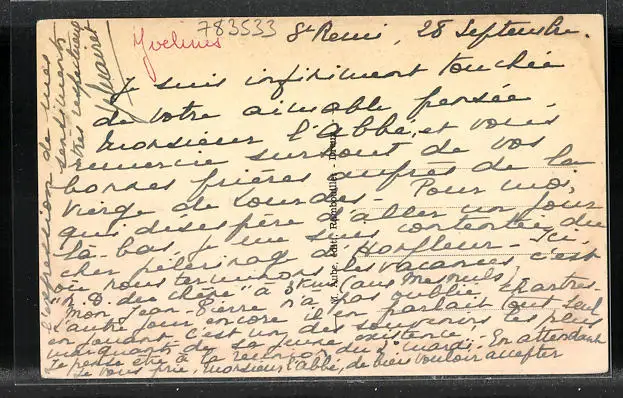 Yvelines
783533
St Remi, 28 Septembre.
Je suis infiniment touchée
de votre aimable pensée,
Monsieur l'Abbé, et vous
remercie surtout de vos
bonnes prières auprès de la
Vierge de Lourdes - Pour moi,
qui désespère d'aller un jour
là-bas, je me suis contentée du
cher pèlerinage de Honfleur - Ici,
où nous terminons les vacances, c'est
"N. D. du Chêne" à 3 km (aux Mesnuls)
Mon Jean-Pierre n'a pas oublié Chartres.
l'autre jour encore il en parlait tout seul
en jouant c'est un des souvenirs les plus
marquants de sa jeune existence - En attendant
Je pense être à la reunion du mardi
Je vous prie, Monsieur l'abbé, de bien vouloir accepter
l'expression de mes
sentiments
très respectueux
M. Aube, édit., Rambouillet -